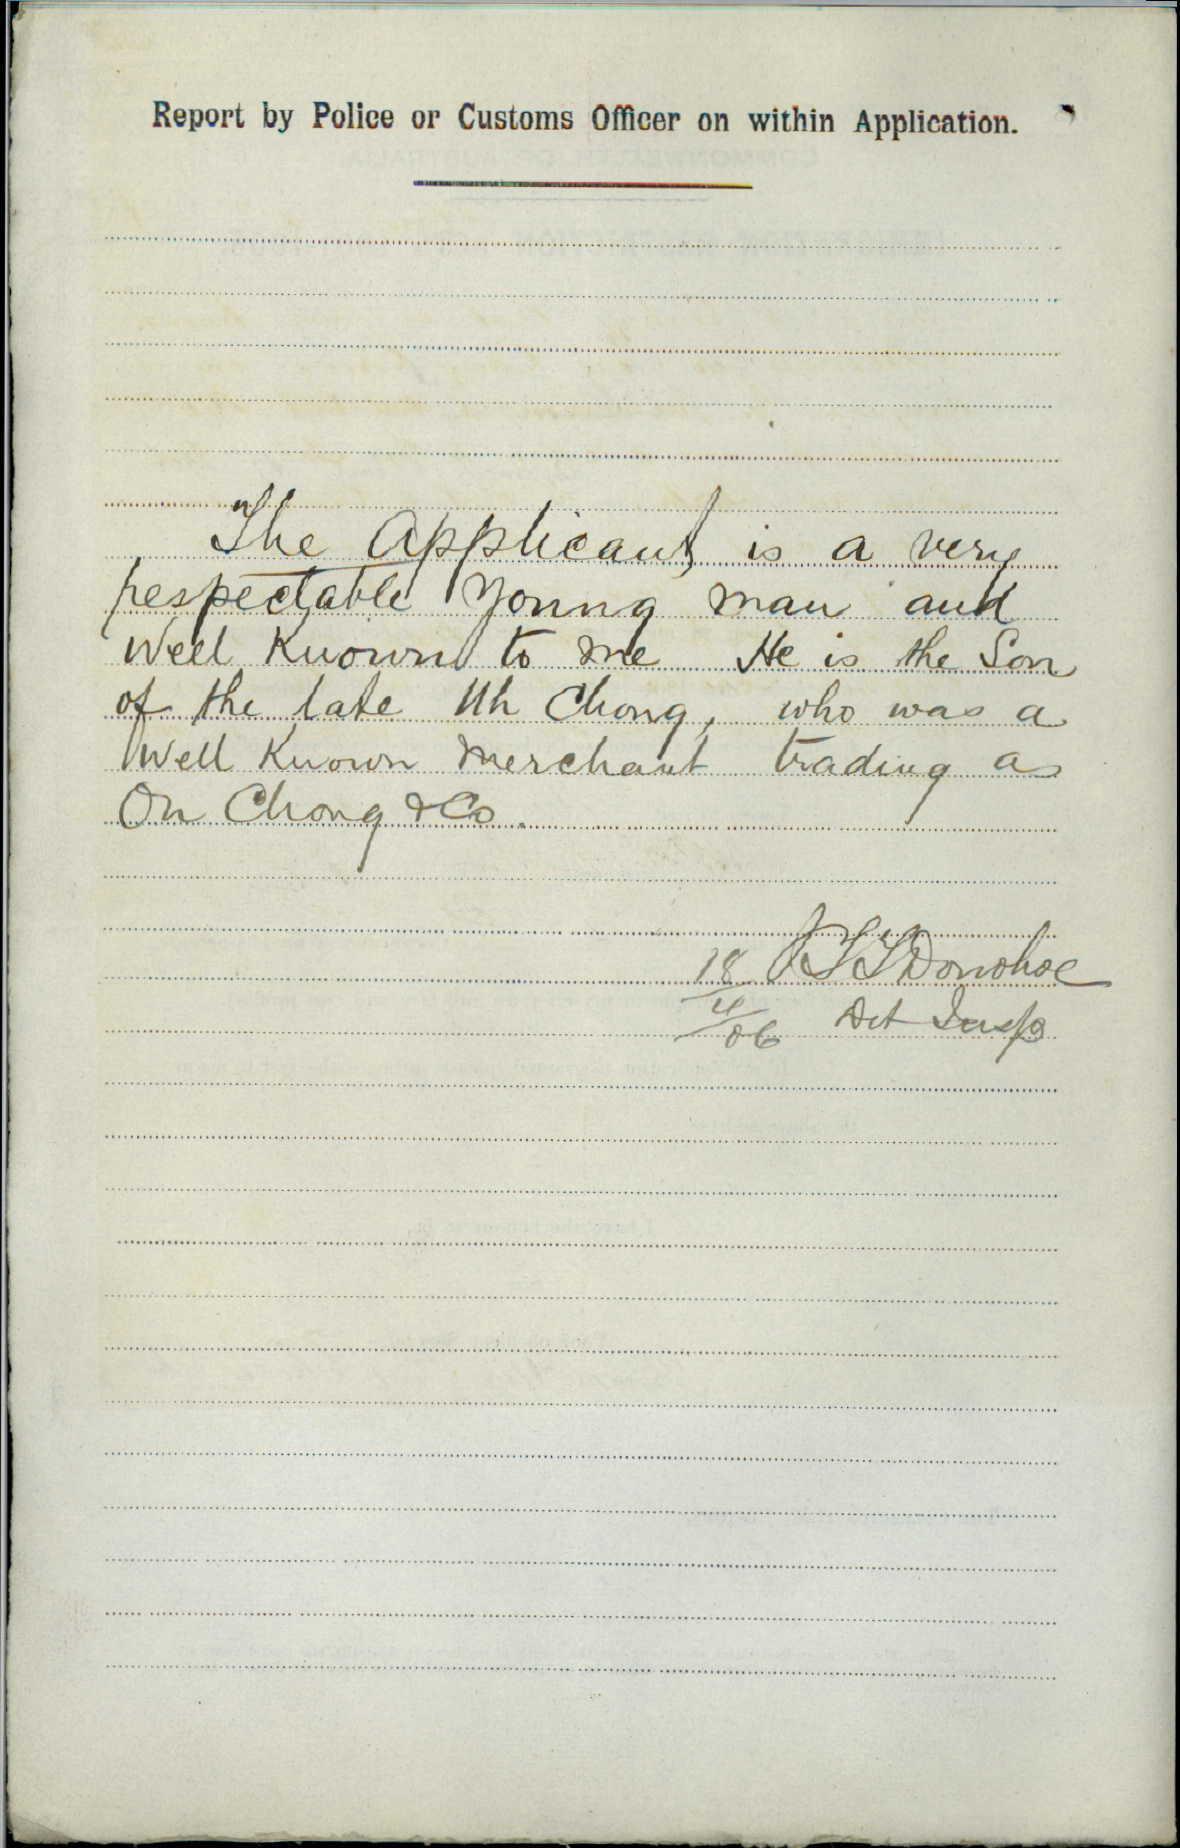 Report by Police or Customs Officer on within Application.
The Applicant is a very
respectable young man and
Well Known to me He is the Son
of the late Uh Chong, who was a
Well Known Merchant trading as
On Chong & Co.
18 Donohoe
4 Det Insp
06